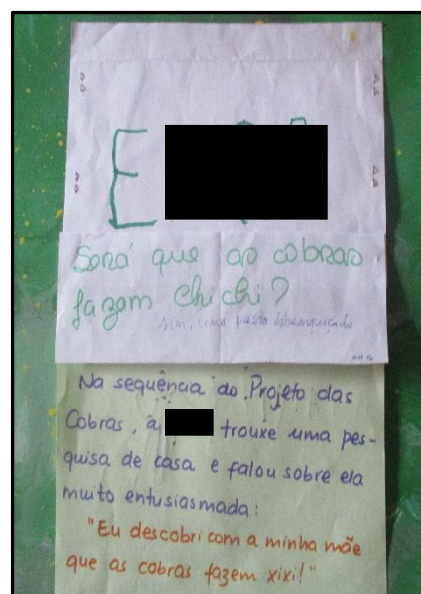 E
Será que as cobras
fazem chichi?
sim, uma pasta esbranquiçada
Na sequência do Projeto das
Cobras, a trouxe uma pes-
quisa de casa e falou sobre ela
muito entusiasmada:
"Eu descobri com a minha mãe
que as cobras fazem xixi!"